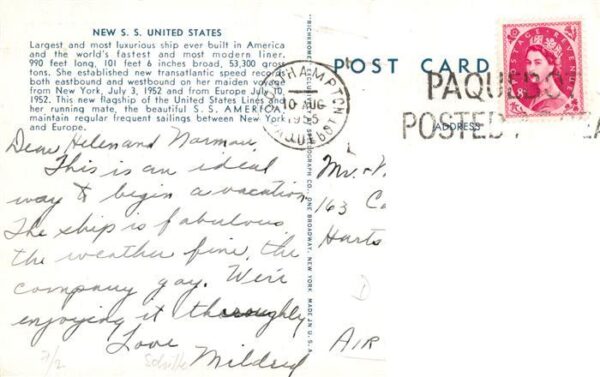 NEW S. S. UNITED STATES
Largest and most luxurious ship ever built in America
and the world's fastest and most modern liner.
990 feet long, 101 feet 6 inches broad, 53,300 gross
tons. She established new transatlantic speed records
both eastbound and westbound on her maiden voyage
from New York, July 3, 1952 and from Europe July 10,
1952. This new flagship of the United States Lines and
her running mate, the beautiful S.S. AMERICA,
maintain regular frequent sailings between New York
and Europe.
Dear Helen and Norman,
This is an ideal
way to begin a vacation
The ship is fabulous
the weather fine, the
company gay. We're
enjoying it thoroughly
Love
Mildred
7/2
POST CARD
ADDRESS
SOUTHAMPTON
10 AUG
1955
PAQUEBOT
PAQUEBOT
POSTED
POSTAGE REVENUE
8
Mr. +
163
Harts
D
AIR
GRAPH CO., ONE BROADWAY, NEW YORK MADE IN U.S.A.